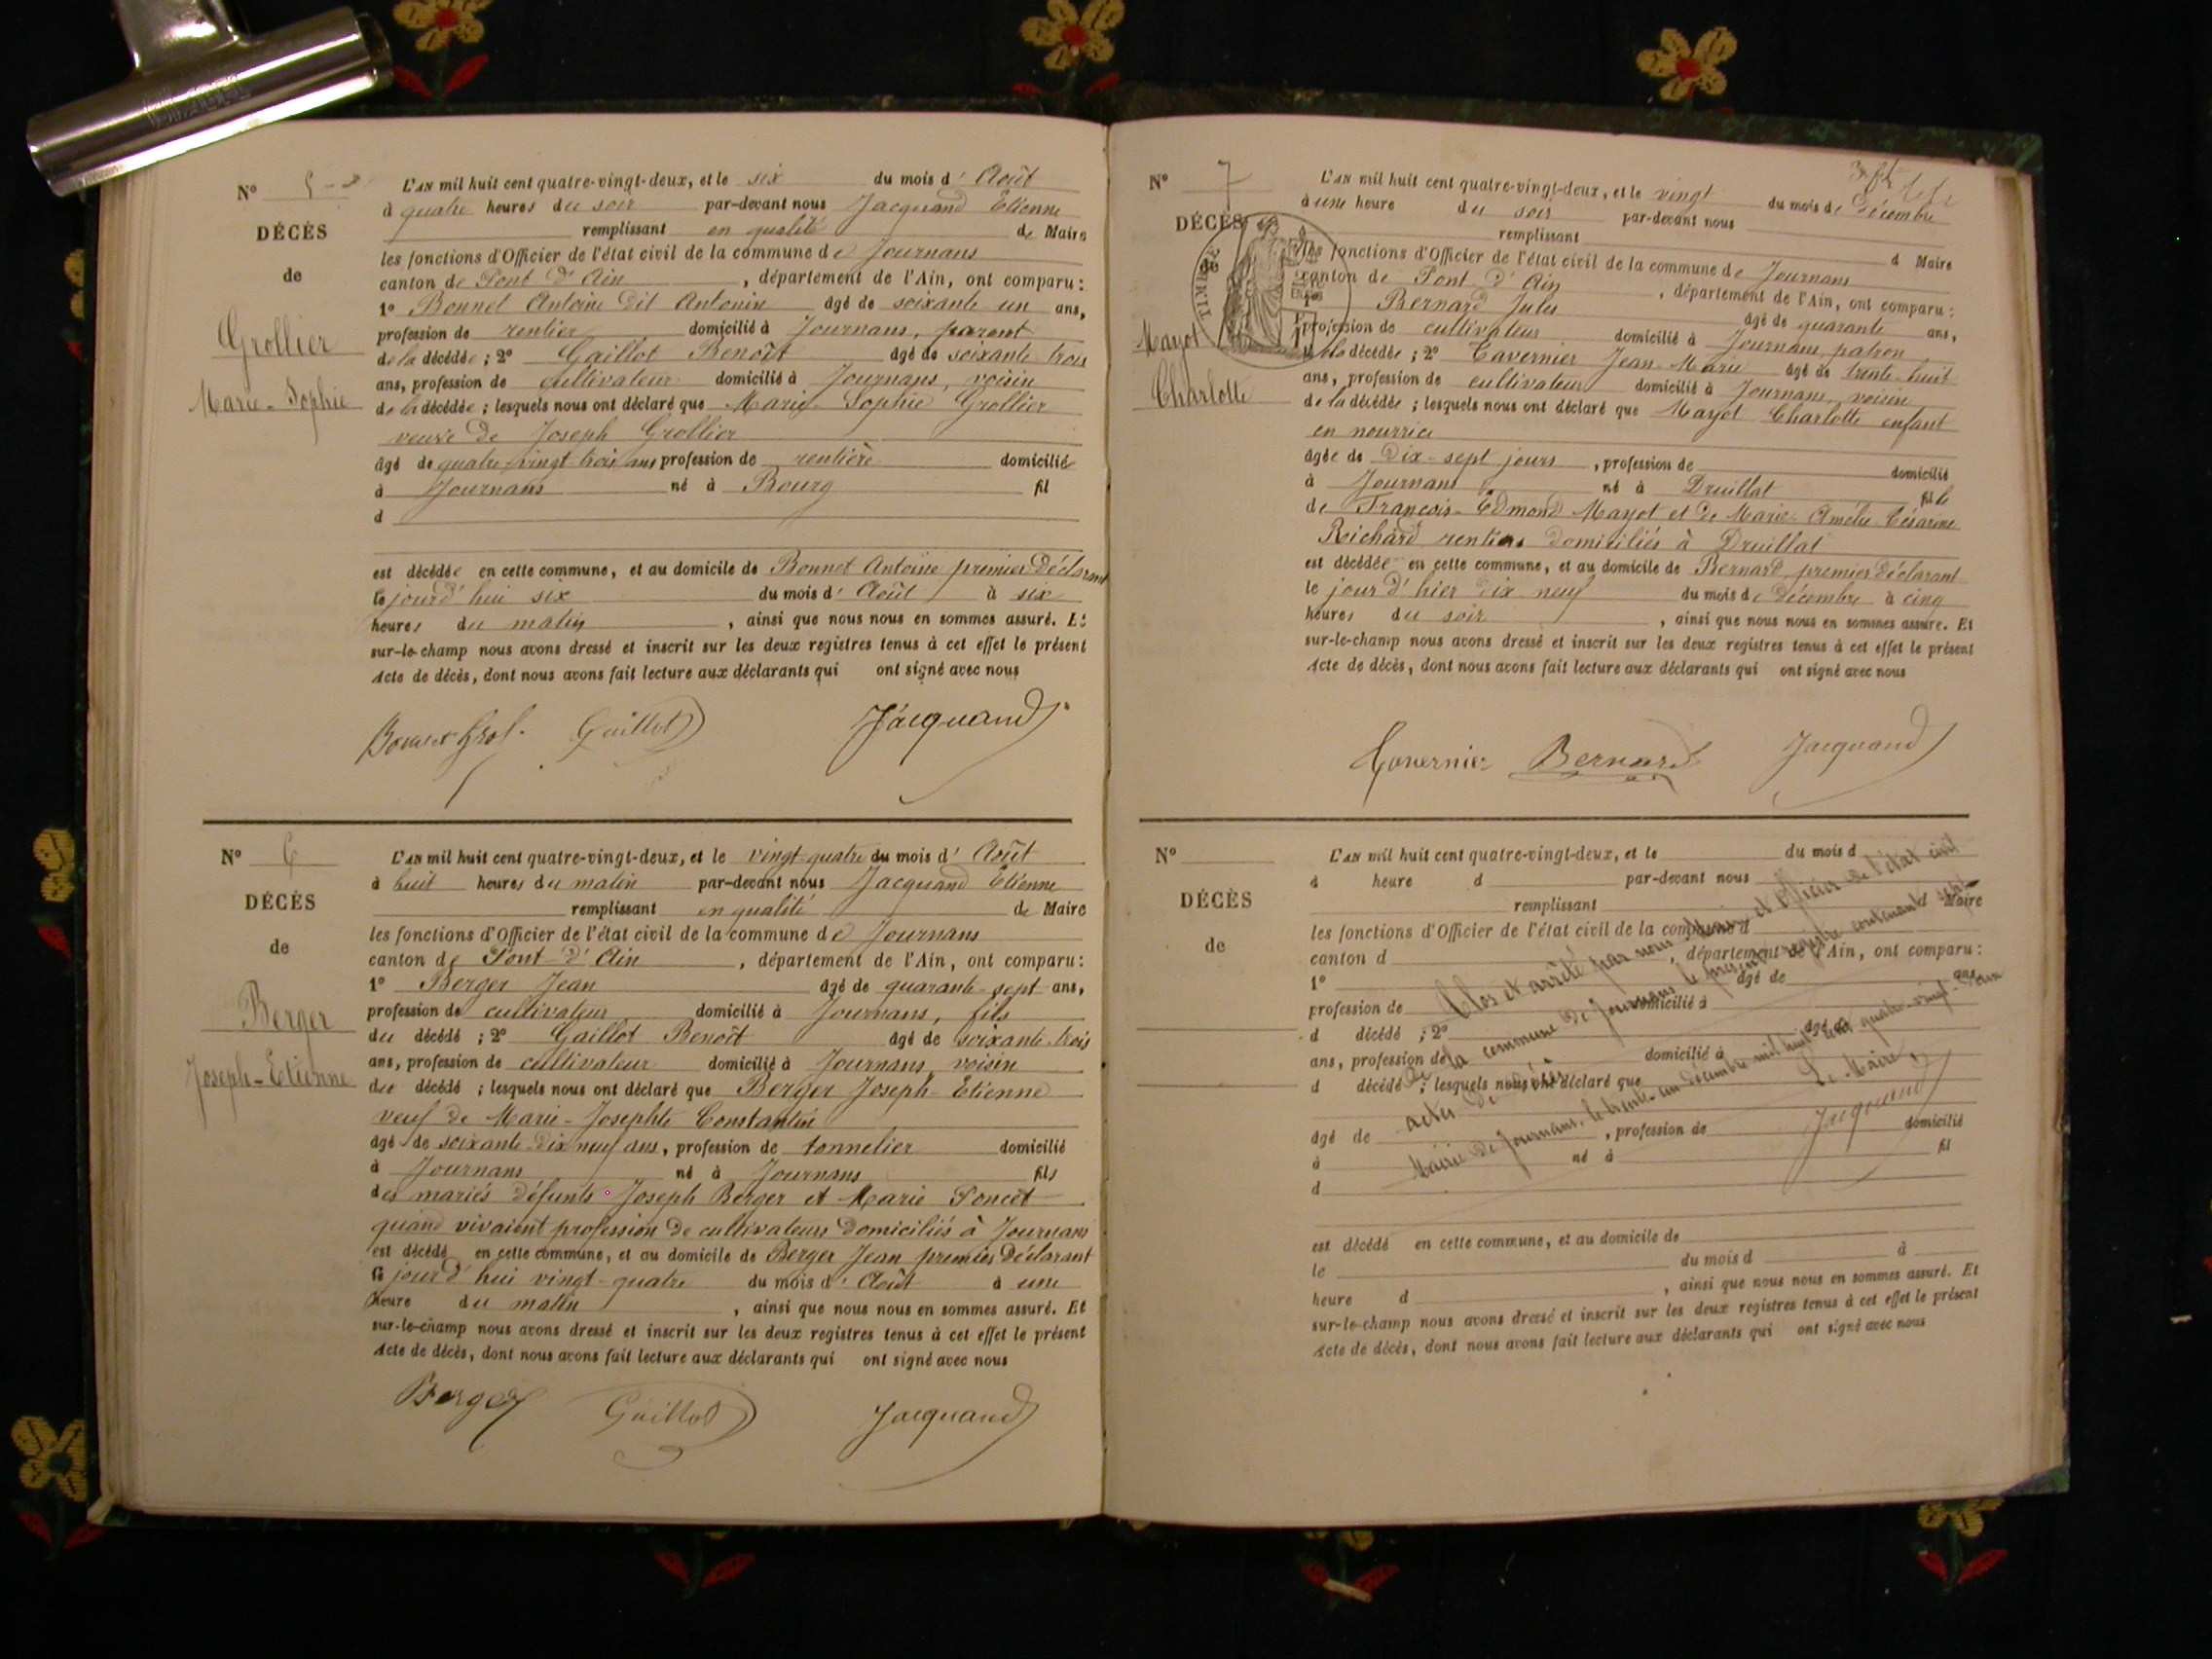 N° 5
DÉCÈS
de
Grollier
Marie-Sophie
L'AN mil huit cent quatre-vingt-deux, et le six du mois d' Août
à quatre heures du soir par-devant nous Jacquand Etienne
remplissant en qualité de Maire
les fonctions d'Officier de l'état civil de la commune de Journans
canton de Pont d'Ain, département de l'Ain, ont comparu:
1° Bonnet Antoine dit Antonin âgé de soixante un ans,
profession de rentier domicilié à Journans, parent
de la décédée; 2° Gaillot Benoît âgé de soixante trois
ans, profession de cultivateur domicilié à Journans, voisin
de la décédée; lesquels nous ont déclaré que Marie-Sophie Grollier
veuve de Joseph Grollier
âgé de quatre-vingt trois ans profession de rentière domicilié
à Journans né à Bourg fil
d
est décédée en cette commune, et au domicile de Bonnet Antoine premier déclarant
le jourd'hui six du mois d' Août à six
heures du matin, ainsi que nous nous en sommes assuré. Et
sur-le-champ nous avons dressé et inscrit sur les deux registres tenus à cet effet le présent
Acte de décès, dont nous avons fait lecture aux déclarants qui ont signé avec nous
Guillot Jacquand
N° 6
DÉCÈS
de
Berger
Joseph-Etienne
L'AN mil huit cent quatre-vingt-deux, et le vingt-quatre du mois d' Août
à huit heures du matin par-devant nous Jacquand Etienne
remplissant en qualité de Maire
les fonctions d'Officier de l'état civil de la commune de Journans
canton de Pont-d'Ain, département de l'Ain, ont comparu:
1° Berger Jean âgé de quarante-sept ans,
profession de cultivateur domicilié à Journans, fils
du décédé; 2° Gaillot Benoît âgé de soixante-trois
ans, profession de cultivateur domicilié à Journans, voisin
du décédé; lesquels nous ont déclaré que Berger Joseph-Etienne
veuf de Marie-Josephte Constantin
âgé de soixante-dix neuf ans, profession de tonnelier domicilié
à Journans né à Journans fils
des mariés défunts Joseph Berger et Marie Poncet
quand vivaient profession de cultivateurs domiciliés à Journans
est décédé en cette commune, et au domicile de Berger Jean premier déclarant
le jourd'hui vingt-quatre du mois d' Août à une
heure du matin, ainsi que nous nous en sommes assuré. Et
sur-le-champ nous avons dressé et inscrit sur les deux registres tenus à cet effet le présent
Acte de décès, dont nous avons fait lecture aux déclarants qui ont signé avec nous
Berger Guillot Jacquand
N° 7
DÉCÈS
de
TIMBRE
Mayot
Charlotte
L'AN mil huit cent quatre-vingt-deux, et le vingt du mois de Décembre
à une heure du soir par-devant nous
remplissant d Maire
les fonctions d'Officier de l'état civil de la commune de Journans
canton de Pont d'Ain, département de l'Ain, ont comparu:
1° Bernard Jules âgé de quarante ans,
profession de cultivateur domicilié à Journans, patron
de la décédée; 2° Tavernier Jean-Marie âgé de trente-huit
ans, profession de cultivateur domicilié à Journans, voisin
de la décédée; lesquels nous ont déclaré que Mayot Charlotte enfant
en nourrice
âgée de dix-sept jours, profession de domicilié
à Journans né à Druillat fille
de François-Edmond Mayot et de Marie-Amélie Césarine
Richard rentiers domiciliés à Druillat
est décédée en cette commune, et au domicile de Bernard premier déclarant
le jour d'hier dix neuf du mois de Décembre à cinq
heures du soir, ainsi que nous nous en sommes assuré. Et
sur-le-champ nous avons dressé et inscrit sur les deux registres tenus à cet effet le présent
Acte de décès, dont nous avons fait lecture aux déclarants qui ont signé avec nous
Tavernier Bernard Jacquand
N°
DÉCÈS
de
L'AN mil huit cent quatre-vingt-deux, et le du mois d
à heure d par-devant nous
remplissant d Maire
les fonctions d'Officier de l'état civil de la commune d
canton d, département de l'Ain, ont comparu:
1° âgé de ans,
profession de domicilié à
d décédé; 2° âgé de
ans, profession de domicilié à
d décédé; lesquels nous ont déclaré que
âgé de, profession de domicilié
à né à fil
d
est décédé en cette commune, et au domicile de
le du mois d à
heure d, ainsi que nous nous en sommes assuré. Et
sur-le-champ nous avons dressé et inscrit sur les deux registres tenus à cet effet le présent
Acte de décès, dont nous avons fait lecture aux déclarants qui ont signé avec nous
Clos et arrêté par nous Maire et officier de l'état civil
de la commune de Journans le présent registre contenant sept
actes de décès
Mairie de Journans, le trente-un décembre mil huit cent quatre-vingt-deux
Le Maire,
Jacquand